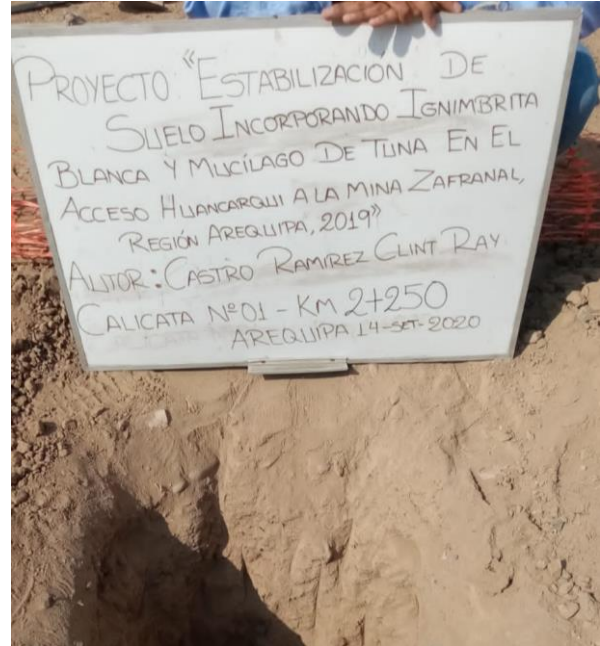 PROYECTO "ESTABILIZACION DE
SUELO INCORPORANDO IGNIMBRITA
BLANCA Y MUCÍLAGO DE TUNA EN EL
ACCESO HUANCARQUI A LA MINA ZAFRANAL,
REGIÓN AREQUIPA, 2019"
AUTOR: CASTRO RAMIREZ CLINT RAY
CALICATA Nº01 - KM 2+250
AREQUIPA 14-SET-2020